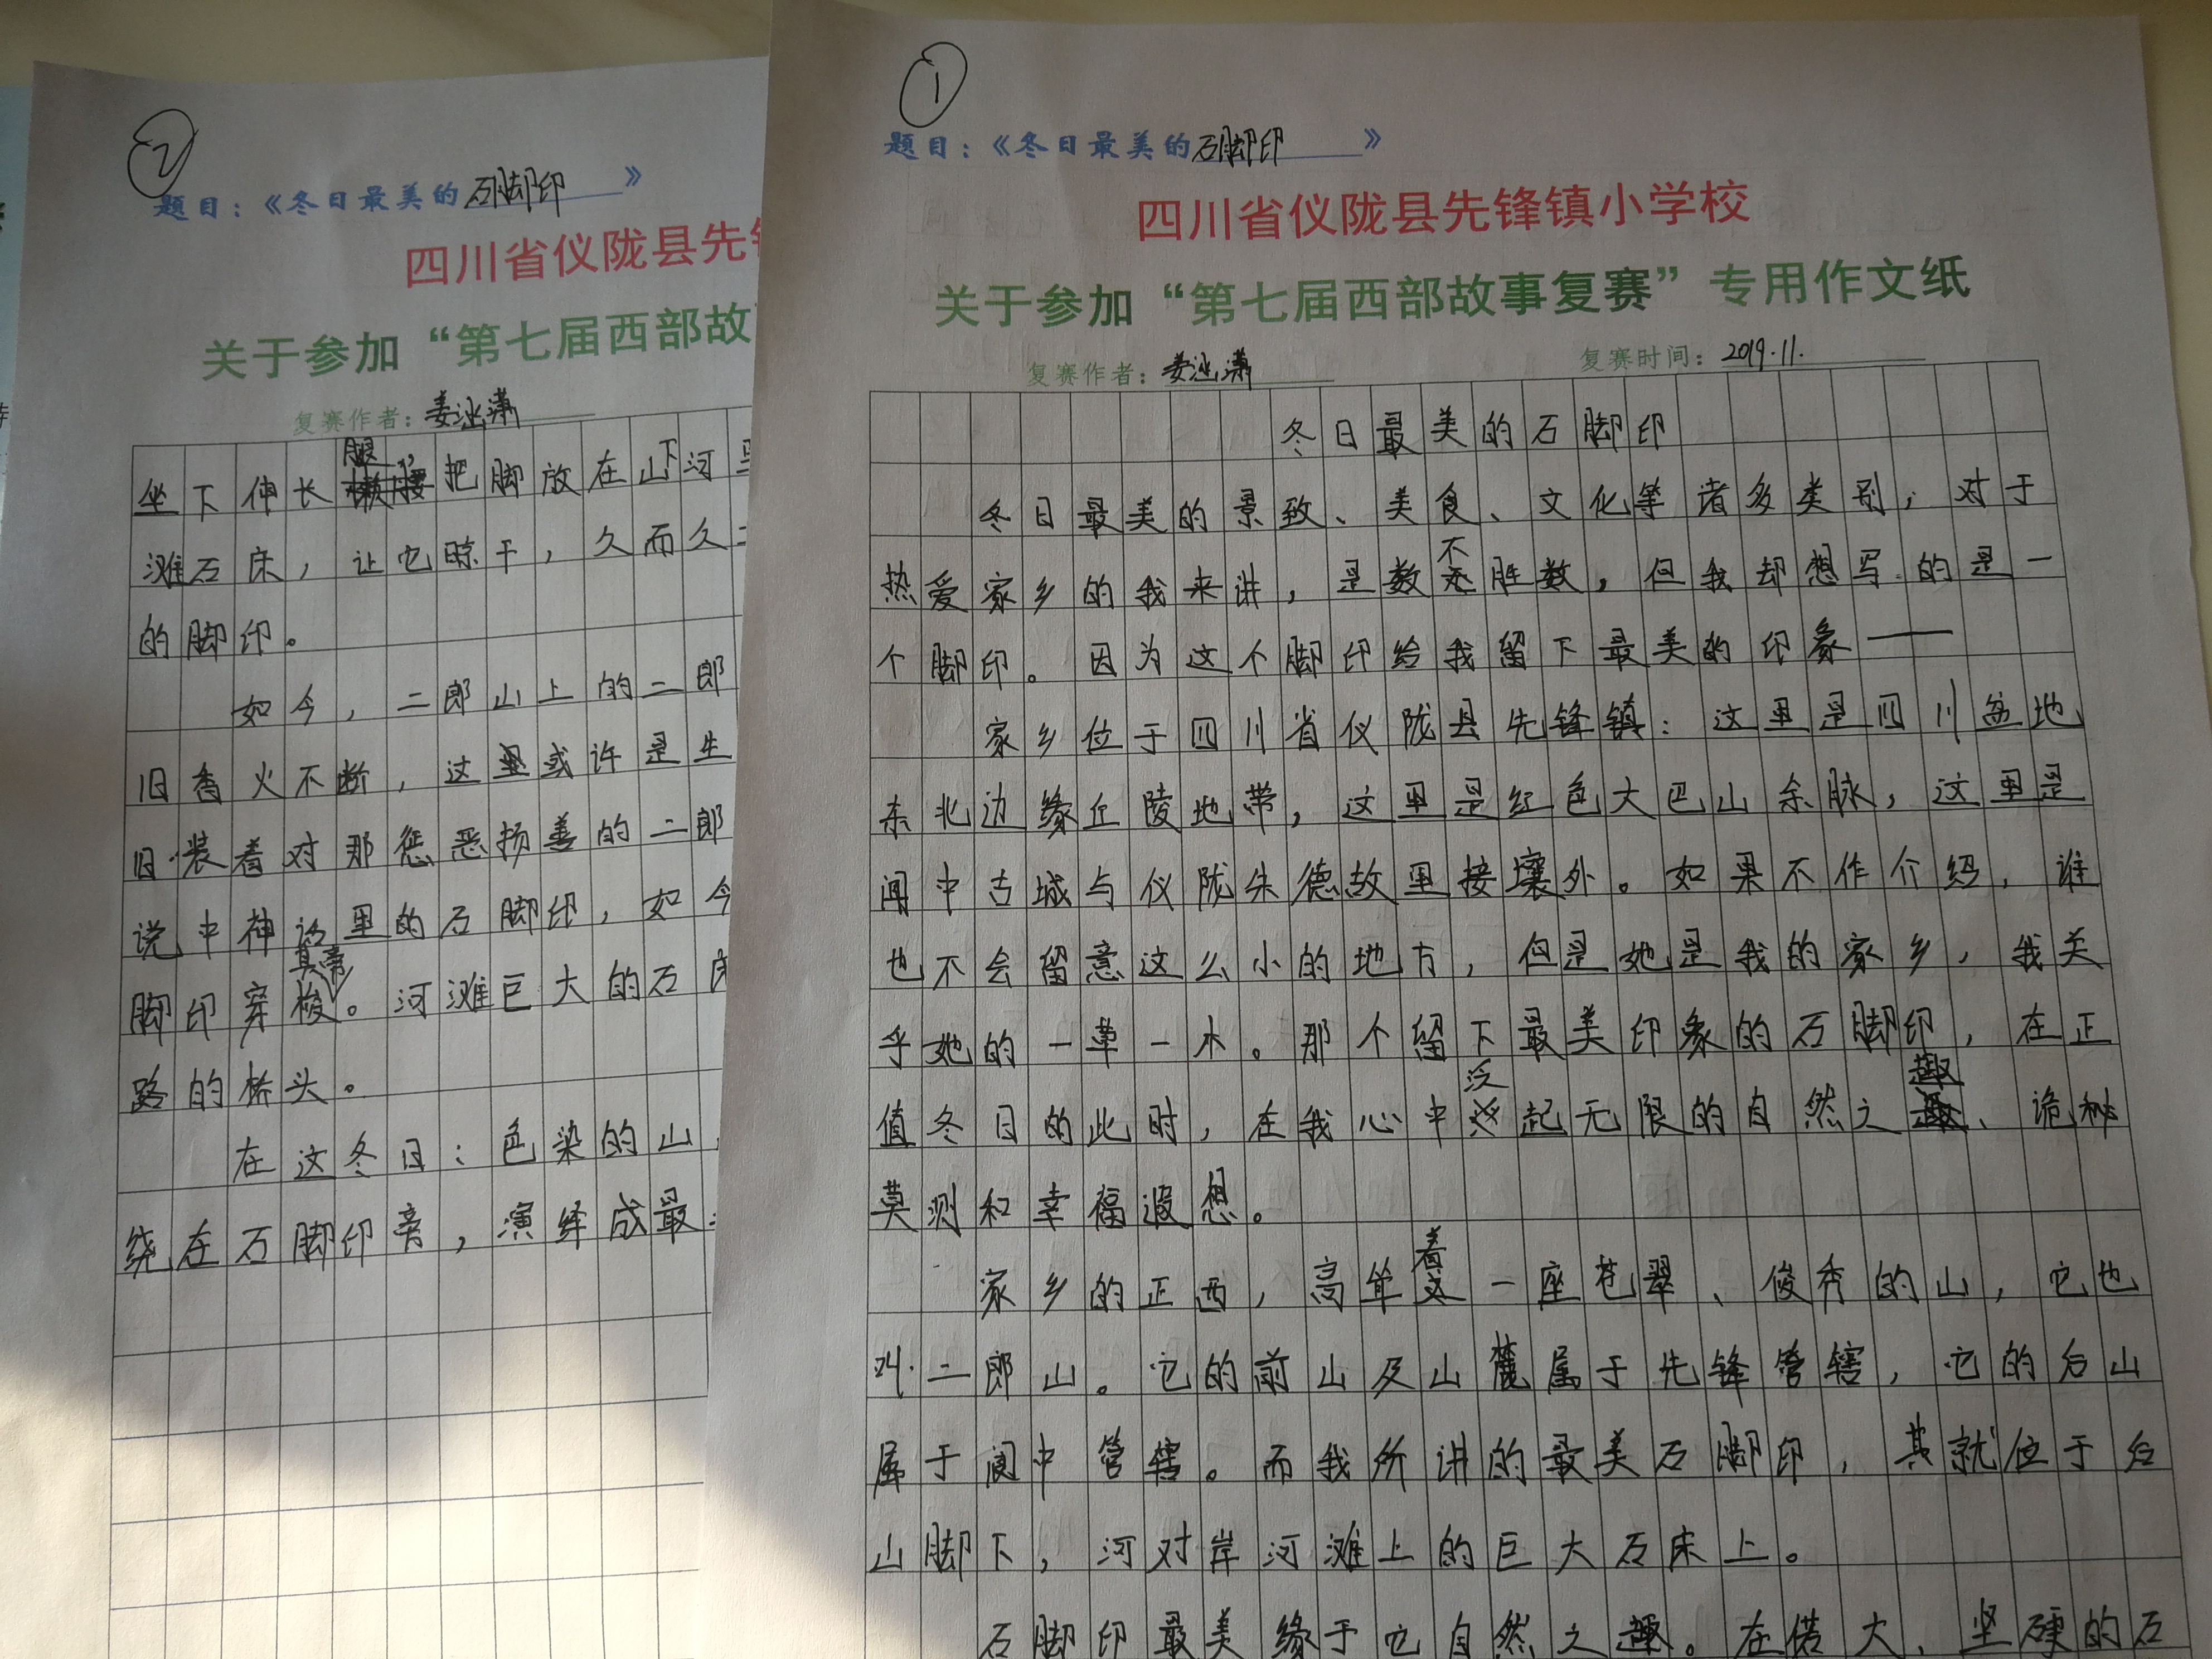 ①
题目：《冬日最美的石脚印》
四川省仪陇县先锋镇小学校
关于参加“第七届西部故事复赛”专用作文纸
复赛作者：姜泓潇 复赛时间：2019.11.
冬日最美的石脚印
冬日最美的景致、美食、文化等诸多类别，对于
热爱家乡的我来讲，是数不胜数，但我却想写的是一
个脚印。因为这个脚印给我留下最美的印象——
家乡位于四川省仪陇县先锋镇：这里是四川盆地
东北边缘丘陵地带，这里是红色大巴山余脉，这里是
阆中古城与仪陇朱德故里接壤外。如果不作介绍，谁
也不会留意这么小的地方，但是她是我的家乡，我关
乎她的一草一木。那个留下最美印象的石脚印，在正
值冬日的此时，在我心中泛起无限的自然之趣、诡秘
莫测和幸福遐想。
家乡的正西，高耸着一座苍翠、俊秀的山，它也
叫二郎山。它的前山及山麓属于先锋管辖，它的后山
属于阆中管辖。而我所讲的最美石脚印，其就位于后
山脚下，河对岸河滩上的巨大石床上。
石脚印最美缘于它自然之趣。在偌大、坚硬的石
②
题目：《冬日最美的石脚印》
四川省仪陇县先
关于参加“第七届西部故
复赛作者：姜泓潇
坐下伸长腿，把脚放在山下河
滩石床，让它晾干，久而久
的脚印。
如今，二郎山上的二郎
旧香火不断，这里或许是生
旧装着对那惩恶扬善的二郎
说中神话里的石脚印，如今
脚印穿梭。河滩巨大的石床
路的桥头。
在这冬日：色染的山
绕在石脚印旁，演绎成最